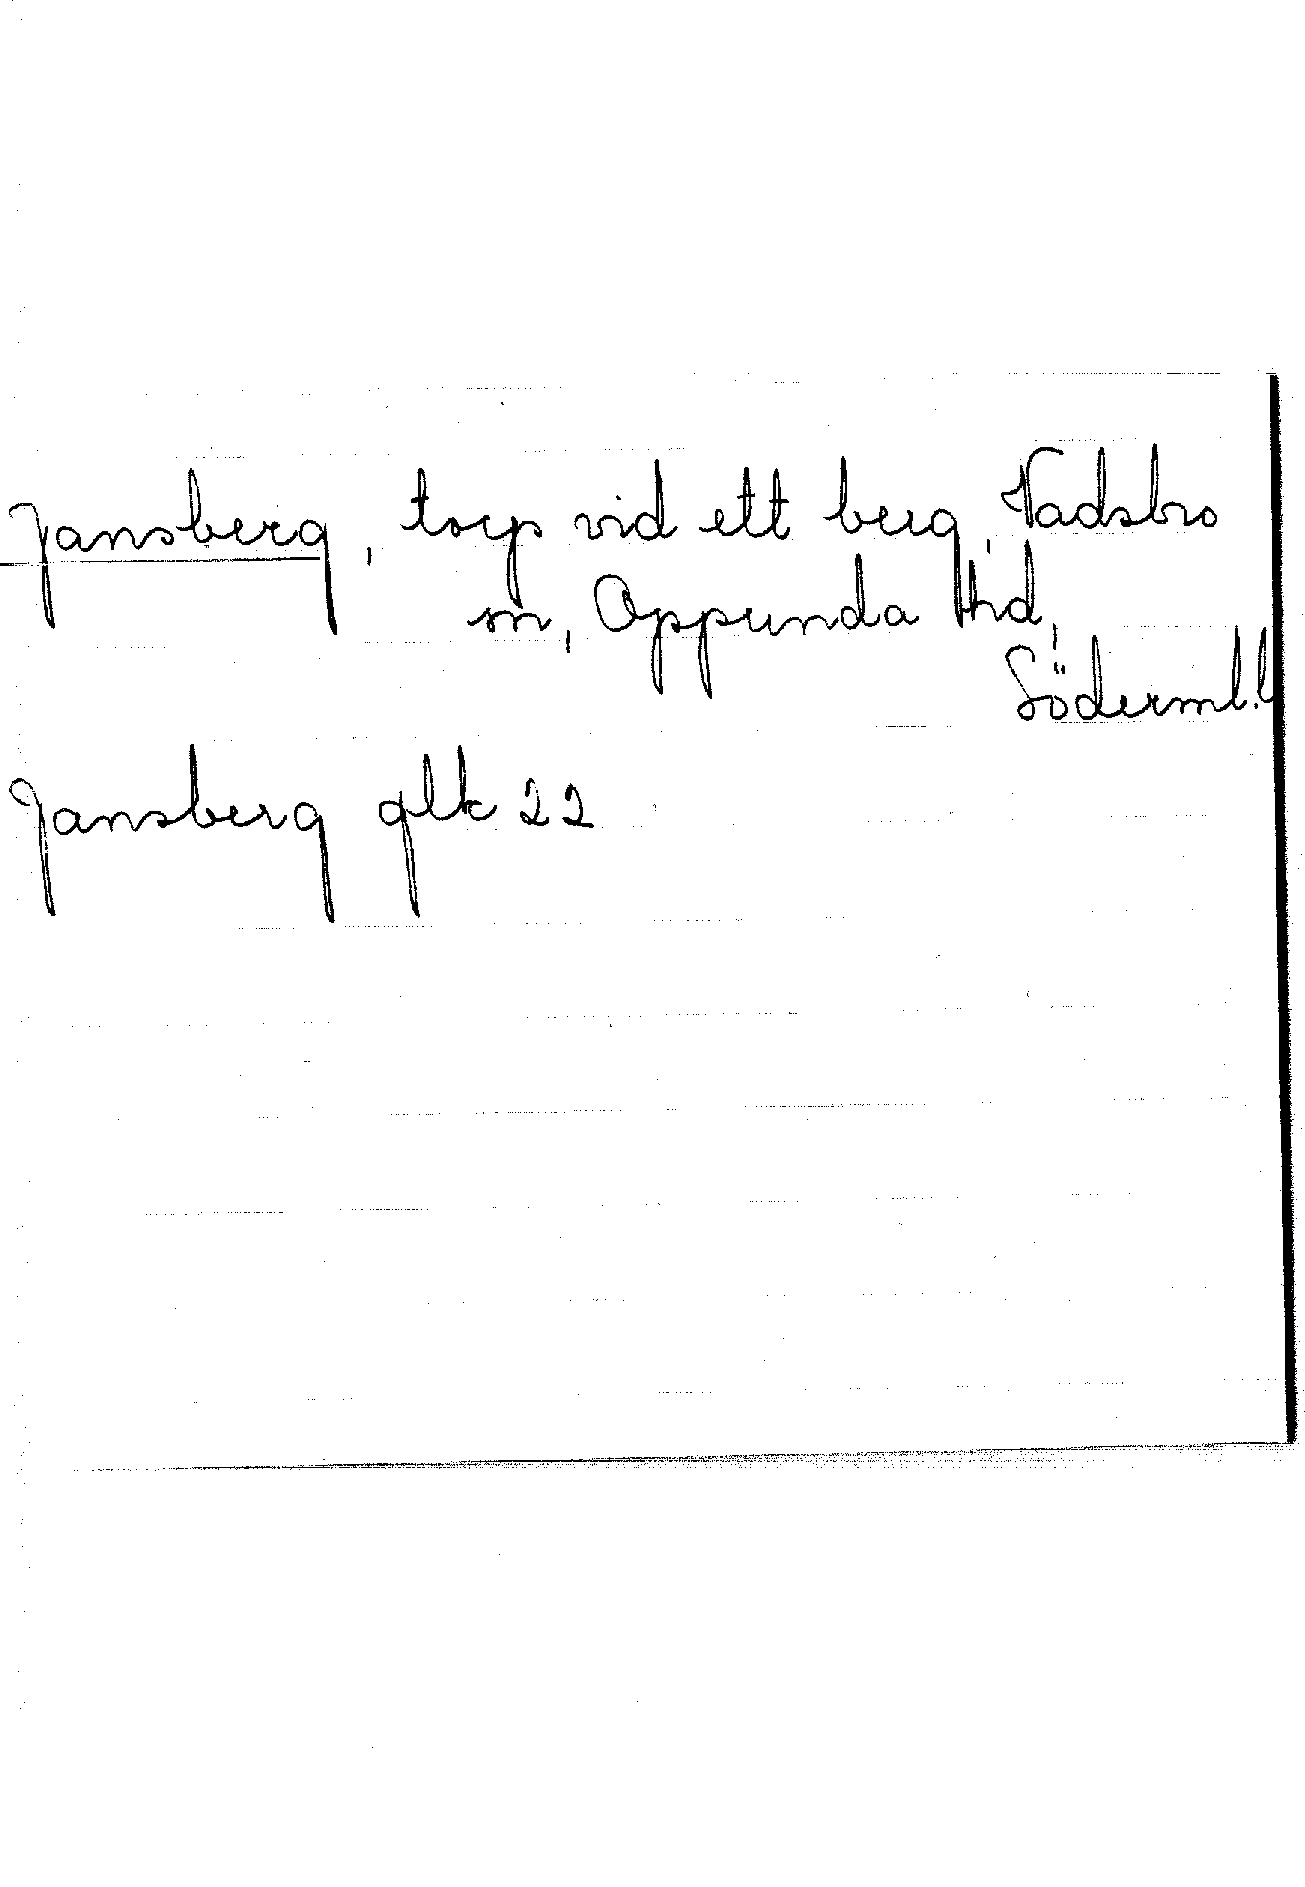 Jansberg, torp vid ett berg, Vadsbro
sn, Oppunda hd,
Söderml. l
Jansberg glk 22